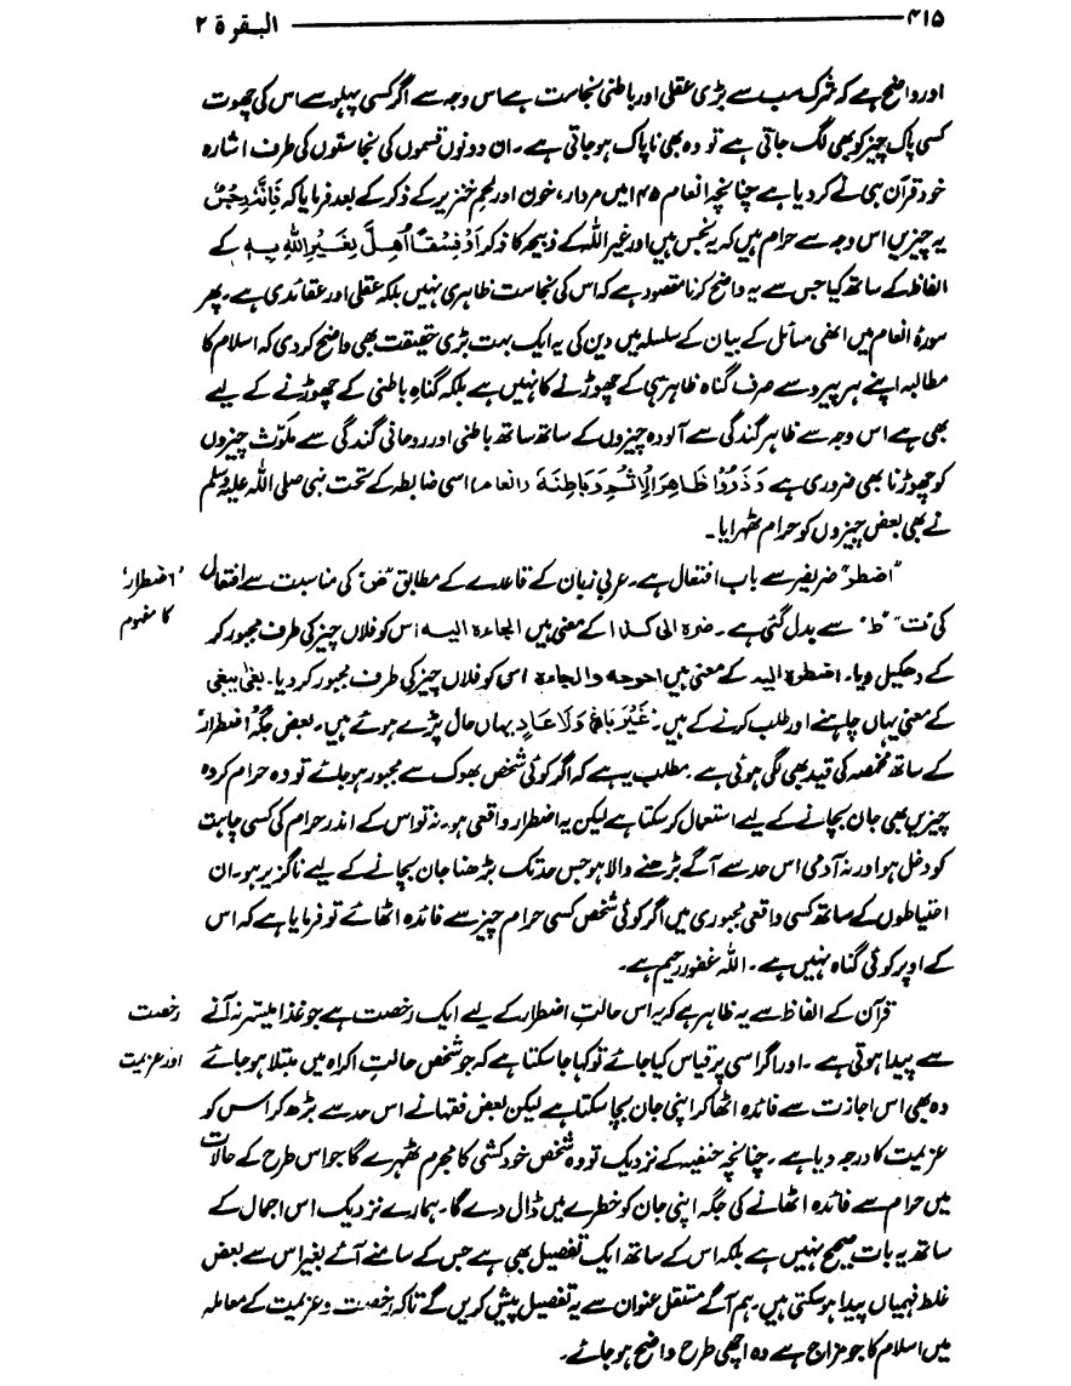 ۴۱۵ ——— البقرة ۲
اور واضح ہے کہ شرک سب سے بڑی عقلی اور باطنی نجاست ہے اس وجہ سے اگر کسی پہلو سے اس کی چھوت
کسی پاک چیز کو بھی لگ جاتی ہے تو وہ بھی ناپاک ہو جاتی ہے۔ ان دونوں قسموں کی نجاستوں کی طرف اشارہ
خود قرآن ہی نے کر دیا ہے چنانچہ انعام ۱۴۵ میں مردار، خون اور لحم خنزیر کے ذکر کے بعد فرمایا کہ فَاِنَّہٗ رِجْسٌ
یہ چیزیں اس وجہ سے حرام ہیں کہ یہ نجس ہیں اور غیر اللہ کے ذبیحہ کا ذکر اَوْ فِسْقًا اُھِلَّ لِغَیْرِ اللہِ بِہٖ کے
الفاظ کے ساتھ کیا جس سے یہ واضح کرنا مقصود ہے کہ اس کی نجاست ظاہری نہیں بلکہ عقلی اور عقائدی ہے۔ پھر
سورۂ انعام میں انھی مسائل کے بیان کے سلسلہ میں دین کی یہ ایک بہت بڑی حقیقت بھی واضح کر دی کہ اسلام کا
مطالبہ اپنے ہر پیرو سے صرف گناہ ظاہر ہی کے چھوڑنے کا نہیں ہے بلکہ گناہِ باطنی کے چھوڑنے کے لیے
بھی ہے اس وجہ سے ظاہر گندگی سے آلودہ چیزوں کے ساتھ ساتھ باطنی اور روحانی گندگی سے ملوّث چیزوں
کو چھوڑنا بھی ضروری ہے وَذَرُوْا ظَاھِرَ الْاِثْمِ وَبَاطِنَہٗ (انعام) اسی ضابطہ کے تحت نبی صلی اللہ علیہ وسلم
نے بھی بعض چیزوں کو حرام ٹھہرایا۔
’اضطرار‘
کا مفہوم
”اضطر“ ضر یضر سے باب افتعال ہے۔ عربی زبان کے قاعدے کے مطابق ’ض‘ کی مناسبت سے افتعال
کی ’ت‘ ’ط‘ سے بدل گئی ہے۔ ضرہ الی کذا کے معنی ہیں الجاءہ الیہ اس کو فلاں چیز کی طرف مجبور کر
کے دھکیل دیا۔ اضطرہ الیہ کے معنی ہیں احوجہ والجاءہ اس کو فلاں چیز کی طرف مجبور کر دیا۔ بغیٰ یبغی
کے معنی یہاں چاہنے اور طلب کرنے کے ہیں۔ غَیْرَ بَاغٍ وَّلَا عَادٍ یہاں حال پڑے ہوئے ہیں۔ بعض جگہ ’اضطرار‘
کے ساتھ مخمصہ کی قید بھی لگی ہوئی ہے۔ مطلب یہ ہے کہ اگر کوئی شخص بھوک سے مجبور ہو جائے تو وہ حرام کردہ
چیزیں بھی جان بچانے کے لیے استعمال کر سکتا ہے لیکن یہ اضطرار واقعی ہو۔ نہ تو اس کے اندر حرام کی کسی چاہت
کو دخل ہو اور نہ آدمی اس حد سے آگے بڑھنے والا ہو جس حد تک بڑھنا جان بچانے کے لیے ناگزیر ہو۔ ان
احتیاطوں کے ساتھ کسی واقعی مجبوری میں اگر کوئی شخص کسی حرام چیز سے فائدہ اٹھائے تو فرمایا ہے کہ اس
کے اوپر کوئی گناہ نہیں ہے۔ اللہ غفور رحیم ہے۔
رخصت
اور عزیمت
قرآن کے الفاظ سے یہ ظاہر ہے کہ یہ اس حالتِ اضطرار کے لیے ایک رخصت ہے جو غذا میسّر نہ آنے
سے پیدا ہوتی ہے۔ اور اگر اسی پر قیاس کیا جائے تو کہا جا سکتا ہے کہ جو شخص حالتِ اکراہ میں مبتلا ہو جائے
وہ بھی اس اجازت سے فائدہ اٹھا کر اپنی جان بچا سکتا ہے لیکن بعض فقہا نے اس حد سے بڑھ کر اس کو
عزیمت کا درجہ دیا ہے۔ چنانچہ حنفیہ کے نزدیک تو وہ شخص خودکشی کا مجرم ٹھہرے گا جو اس طرح کے حالات
میں حرام سے فائدہ اٹھانے کی جگہ اپنی جان کو خطرے میں ڈال دے گا۔ ہمارے نزدیک اس اجمال کے
ساتھ یہ بات صحیح نہیں ہے بلکہ اس کے ساتھ ایک تفصیل بھی ہے جس کے سامنے آئے بغیر اس سے بعض
غلط فہمیاں پیدا ہو سکتی ہیں۔ ہم آگے مستقل عنوان سے یہ تفصیل پیش کریں گے تاکہ رخصت و عزیمت کے معاملہ
میں اسلام کا جو مزاج ہے وہ اچھی طرح واضح ہو جائے۔